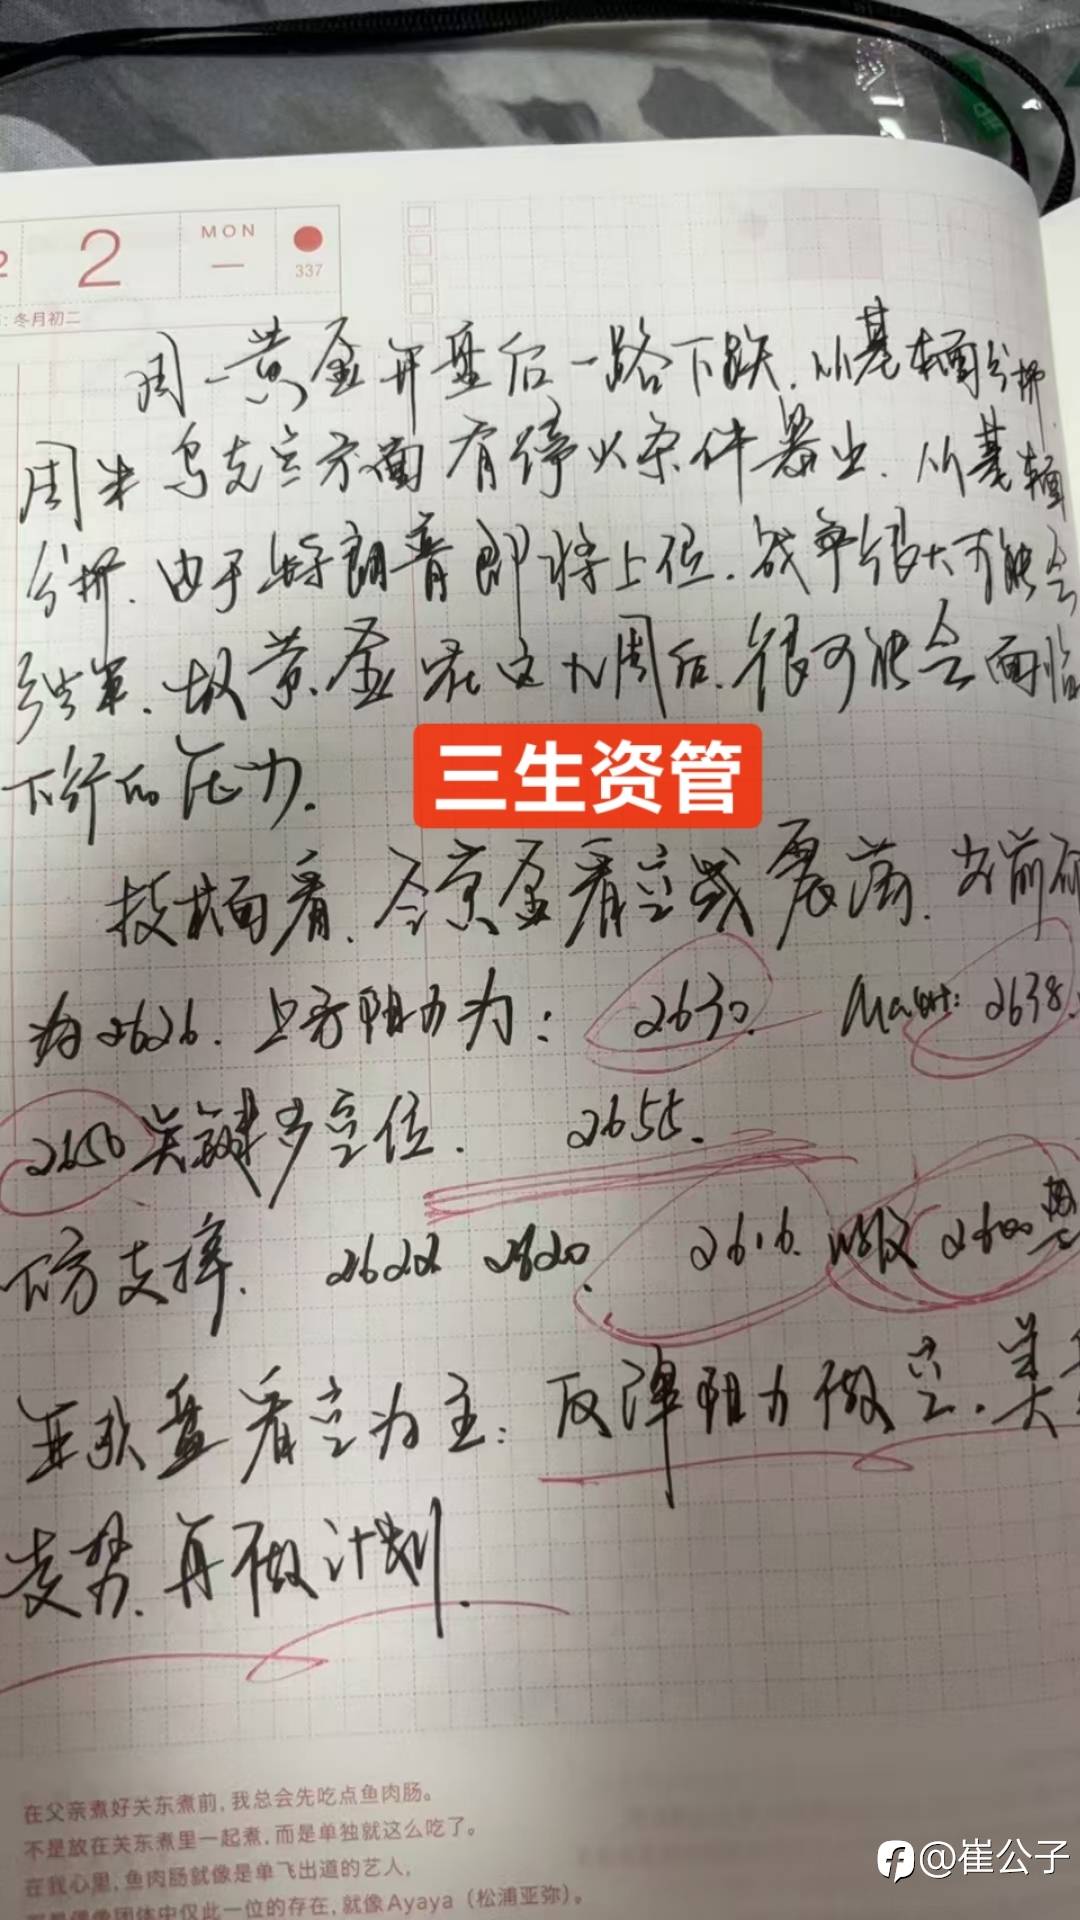 2
2
MON
一
337
冬月初二
周一黄金开盘后一路下跌.从基本面分析
周末乌克兰方面有停火条件露出.从基本面
分析.由于特朗普即将上位.战争很大可能会
结束.故黄金在这几周后.很可能会面临
下行的压力.
三生资管
技术面看.今黄金看空或震荡.当前
为2626.上方阻力为: 2630. 2638.
2650关键多空位. 2655.
下方支撑. 2622 2620. 2616. 2600
亚欧盘看空为主:反弹阻力做空.美
走势.再做计划.
在父亲煮好关东煮前,我总会先吃点鱼肉肠。
不是放在关东煮里一起煮,而是单独就这么吃了。
在我心里,鱼肉肠就像是单飞出道的艺人,
是偶像团体中仅此一位的存在,就像Ayaya（松浦亚弥）。
@崔公子